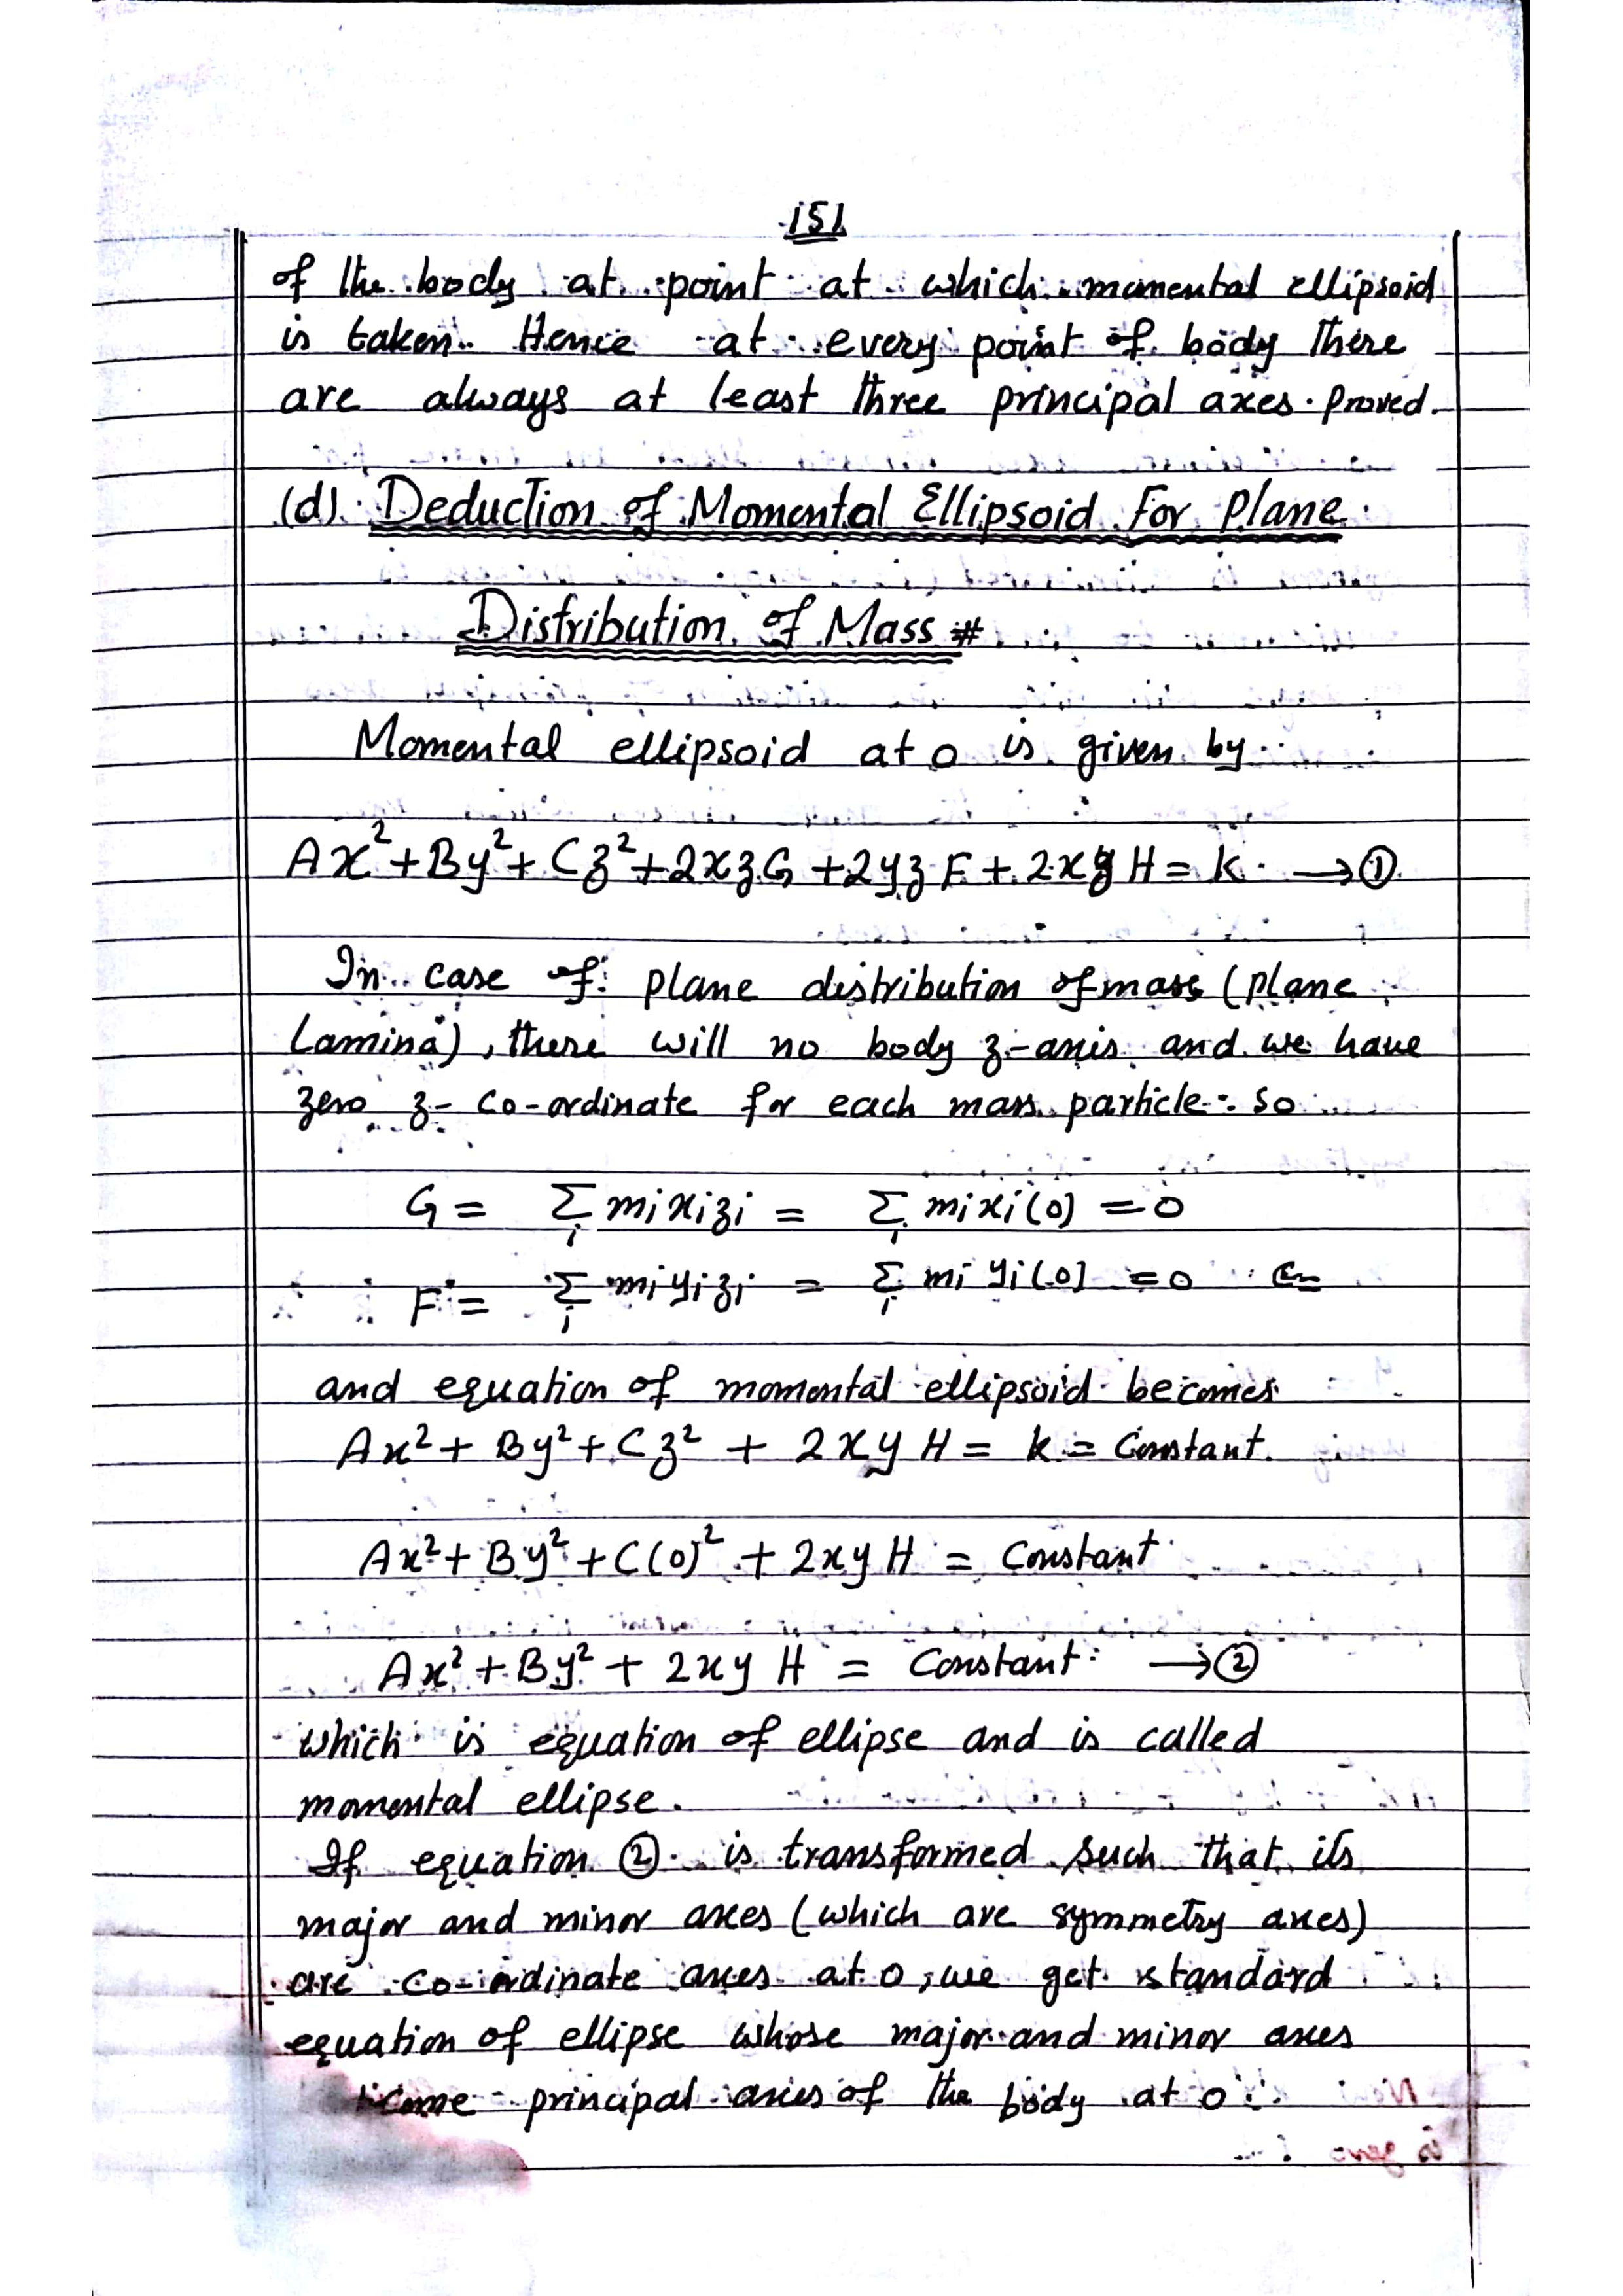 151
of the body at point at which momental ellipsoid
is taken. Hence at every point of body there
are always at least three principal axes. Proved.
(d). Deduction of Momental Ellipsoid For Plane
Distribution of Mass #
Momental ellipsoid at o is given by
Ax² + By² + Cz² + 2xzG + 2yzF + 2xyH = k. → ①
In case of plane distribution of mass (plane
Lamina), there will no body z-axis and we have
zero z- co-ordinate for each mass particle. so
G = Σᵢ mᵢxᵢzᵢ = Σᵢ mᵢxᵢ(0) = 0
F = Σᵢ mᵢyᵢzᵢ = Σᵢ mᵢyᵢ(0) = 0
and equation of momental ellipsoid becomes
Ax² + By² + Cz² + 2xyH = k = Constant.
Ax² + By² + C(0)² + 2xyH = Constant
Ax² + By² + 2xyH = Constant → ②
which is equation of ellipse and is called
momental ellipse.
If equation ② is transformed such that its
major and minor axes (which are symmetry axes)
are co-ordinate axes at o, we get standard
equation of ellipse whose major and minor axes
principal axes of the body at o.